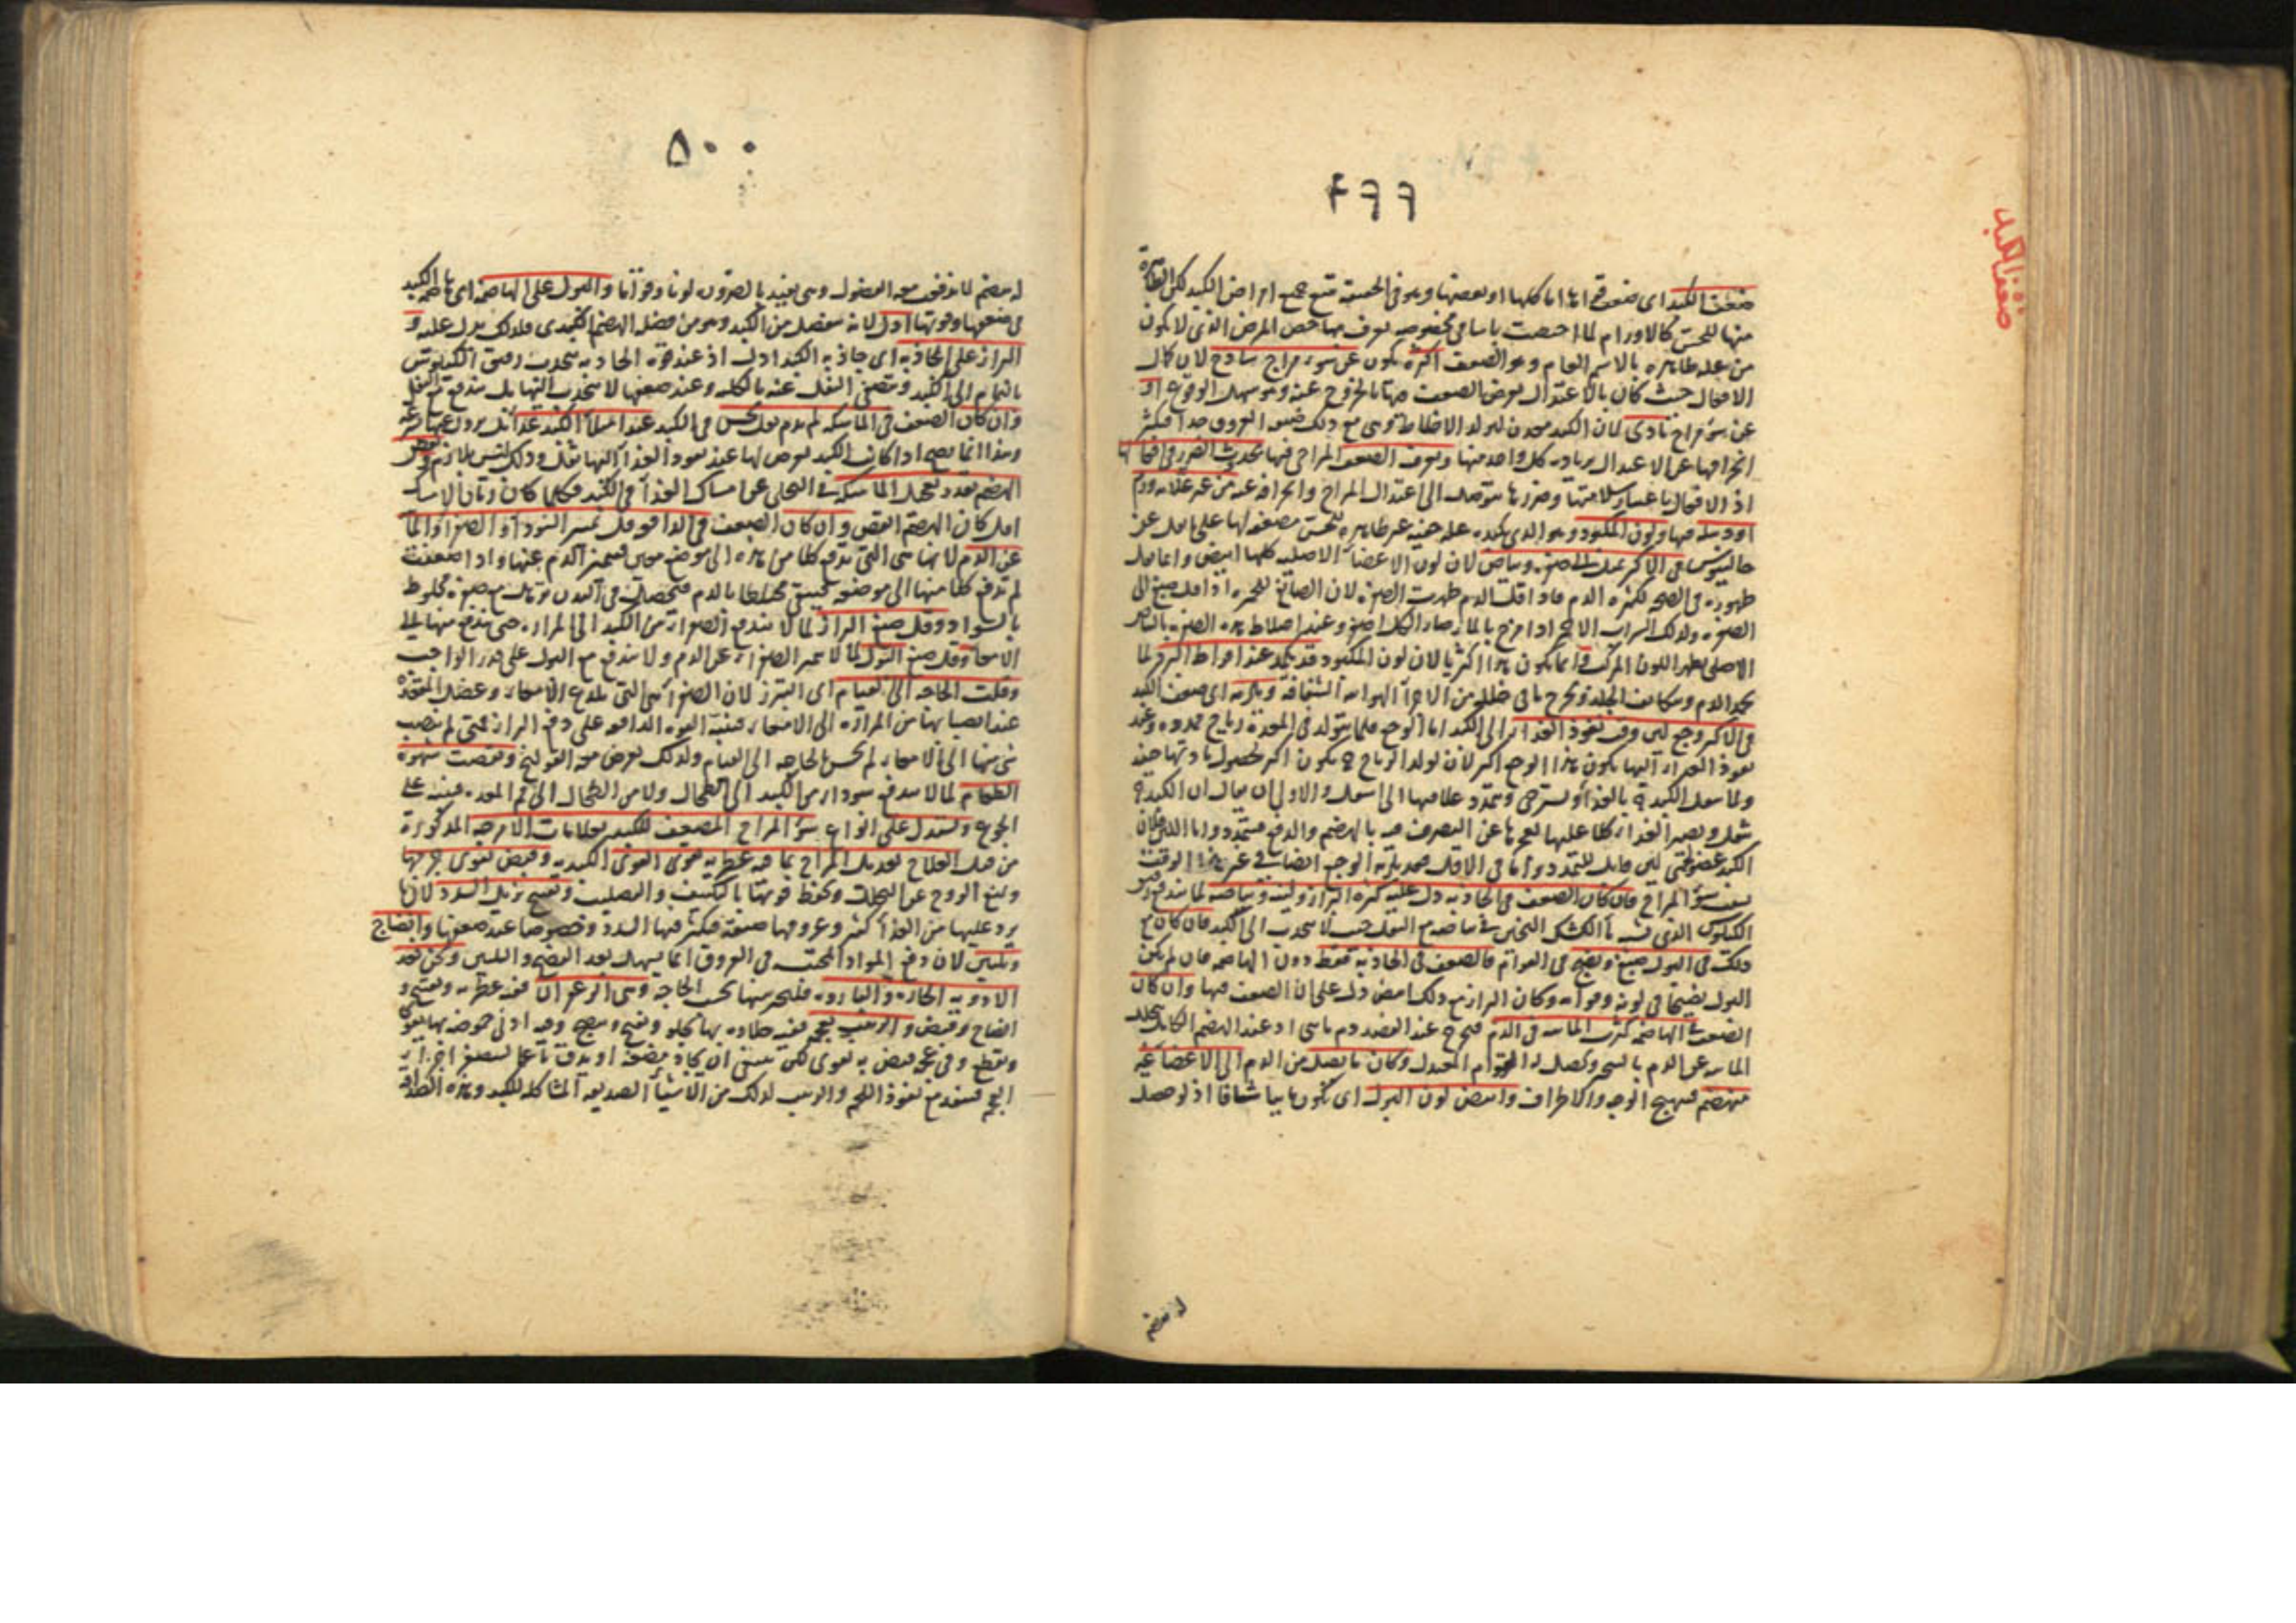 ٤٩٩
ضعف الكبد
ضعف الكبد اى ضعف قواها اما كلها او بعضها وهو فى الحقيقة يتبع جميع امراض الكبد لكن الظاهرة
منها للحس كالاورام لما اختصت باسامى مخصوصه يعرف بها خص المرض الذى لا يكون
من علة ظاهرة بالاسم العام وهو الضعف اكثره يكون عن سوء مزاج ساذج لان كمال
الافعال حيث كان بالاعتدال يعرض الضعف منها بالخروج عنه وهو سهل الوقوع او
عن سوء مزاج مادى لان الكبد معدن لتولد الاخلاط وهى مع ذلك ضيقة العروق جدا فيكثر
انحرافها عن الاعتدال بزيادة كل واحد منها ويعرف الضعف المزاجى فيها بحدوث الضرر فى افعالها
اذ الافعال باعتبار سلامتها وضررها متوقف الى اعتدال المزاج وانحرافه عنه من غير علامة ورم
او دبيلة فيها ولون المكبود وهو الذى بكبده علة خفية غير ظاهرة للحس مضعفة لها على ما نقل عن
جالينوس فى الاكثر يميل الى صفرة وبياض لان لون الاعضاء الاصلية كلها ابيض وانما قل
ظهوره فى الصحة لكثرة الدم فاذا قل الدم ظهرت الصفرة لان الصابغ للحمرة اذا قل صبغ الى
الصفرة ولذلك الشراب الاحمر اذا مزج بالماء صار الى اصفر وعند اختلاط هذه الصفرة بالبياض
الاصلى يظهر اللون المركب وانما يكون هذا اكثريا لان لون المكبود قد يكمد عند افراط البرد لما
يجمد الدم ويتكاثف الجلد ويخرج ما فى خلله من الاجزاء الهوائية الشفافة ويلزمه اى ضعف الكبد
فى الاكثر وجع لين وقت نفوذ الغذاء الى الكبد اما الوجع فلما يتولد فى المعدة رياح ممددة وعند
نفوذ الغذاء اليها يكون هذا الوجع اكثر لان تولد الرياح ح يكون اكثر لحصول مادتها حينئذ
ولما يثقل الكبد ح بالغذاء ويسترخى ويتمدد علايقها الى اسفل والاولى ان يقال ان الكبد ح
يثقل ويصير الغذاء كلا عليها لعجزها عن التصرف فيه بالهضم والدفع فيتمدد واما اللين فلان
الكبد عضو لحمى لين قابل للتمدد واما فى الاقل
بسبب سوء المزاج فان كان الضعف فى الجاذبة دل عليه كثرة البراز ولينه وبياضه لما يندفع
الكيلوس الذى شبيه بماء الكشك الثخين فى بياضه مع الثفل حيث لا ينجذب الى الكبد فان كان مع
ذلك فى البول صبغ ونضج فى القوام فالضعف فى الجاذبة فقط دون الهاضمة فان لم يكن
البول نضيجا فى لونه وقوامه وكان البراز مع ذلك ابيض دل على ان الضعف فيها وان كان
الضعف فى الهاضمة كثرت المائية فى الدم فيخرج عند الفصد دم مائى اذ عند الهضم الكامل يتحلل
المائية عن الدم بالتبخر ويحصل له القوام المعتدل وكان ما يصل من الدم الى الاعضاء غير
منهضم فيهيج الوجه والاطراف وابيض لون البول اى يكون مايا شفافا اذ لو حصل
له هضم
٥٠٠
له هضم لاندفعت معه الفضول وهى يفيد بالضرورة لونا وقواما والبول على الهاضمة اى هاضمة الكبد
فى ضعفها وقوتها ادل لانه ينفصل من الكبد وهو من فضل الهضم الكبدى فلذلك يدل عليه و
البراز على الجاذبة اى جاذبة الكبد ادل اذ عند قوة الجاذبة ينجذب رقيق الكيلوس
بالتمام الى الكبد ويتصفى الثفل عنه بالكلية وعند ضعفها لا ينجذب اليها بل يندفع مع الثفل
وان كان الضعف فى الماسكة لم يدم ثقل يحس فى الكبد عند امتلاء الكبد غذاء بل يزول عنها بسرعة
وهذا انما يصح اذا كانت الكبد يعرض لها عند نفوذ الغذاء اليها ثقل وذلك ليس بلازم ونقص
الهضم بقدر تعجيل الماسكة فى التخلى عن امساك الغذاء فى الكبد فكلما كان زمان الامساك
اقل كان الهضم انقص وان كان الضعف فى الدافعة قل تميز السوداء والصفراء والماء
عن الدم لانها هى التى تدفع كلا من هذه الى موضع معين فيتميز الدم عنها واذا ضعفت
لم تدفع كلا منها الى موضعه فيبقى مختلطا بالدم فيحصل فى البدن ترهل مع صفرة مخلوط
بالسواد وقل صبغ البراز لما لا يندفع الصفراء من الكبد الى المرارة حتى يندفع منها الى
الامعاء وقل صبغ البول لما لا يتميز الصفراء عن الدم ولا يندفع مع البول على قدر الواجب
وقلت الحاجة الى القيام اى التبرز لان الصفراء هى التى تلذع الامعاء وعضل المقعدة
عند انصبابها من المرارة الى الامعاء فينبه القوة الدافعة على دفع البراز فمتى لم ينصب
شئ منها الى الامعاء لم يحس بالحاجة الى القيام ولذلك يعرض معه القولنج ونقصت شهوة
الطعام لما لا يندفع سوداء من الكبد الى الطحال ولا من الطحال الى فم المعدة فينبه على
الجوع ويستدل على انواع سوء المزاج المضعف للكبد بعلامات الامزجة المذكورة
من قبل العلاج تعديل المزاج بما فيه عطرية يقوى القوى الكبدية وقبض يقوى جرمها
ويمنع الروح عن التحلل ويحفظ قوتها بالتكثيف والتصليب وتفتيح يزيل السدد لانها
يرد عليها من الغذاء كثير وعروقها ضيقة فيكثر فيها السدد وخصوصا عند ضعفها وانضاج
وتليين لان دفع المواد المحتبسة فى العروق انما يسهل بعد النضج والتليين وكن تعد
الادوية الحارة والباردة فليختر منها بحسب الحاجة وهى الزعفران ففيه عطرية وتفتيح و
انضاج وقبض والزبيب بعجمه ففيه حلاوة بها يجلو ويفتح وينضج وفيه ادنى حموضة بها يقوى
ويقطع وفى عجمه قبض به يقوى لكن ينبغى ان يجاد مضغه او يدق ناعما ليتصغر اجزاء
العجم فينفذ مع نفوذ اللحم والزبيب لذلك من الاشياء الصديقة المشاكلة للكبد وهذه الطريقة